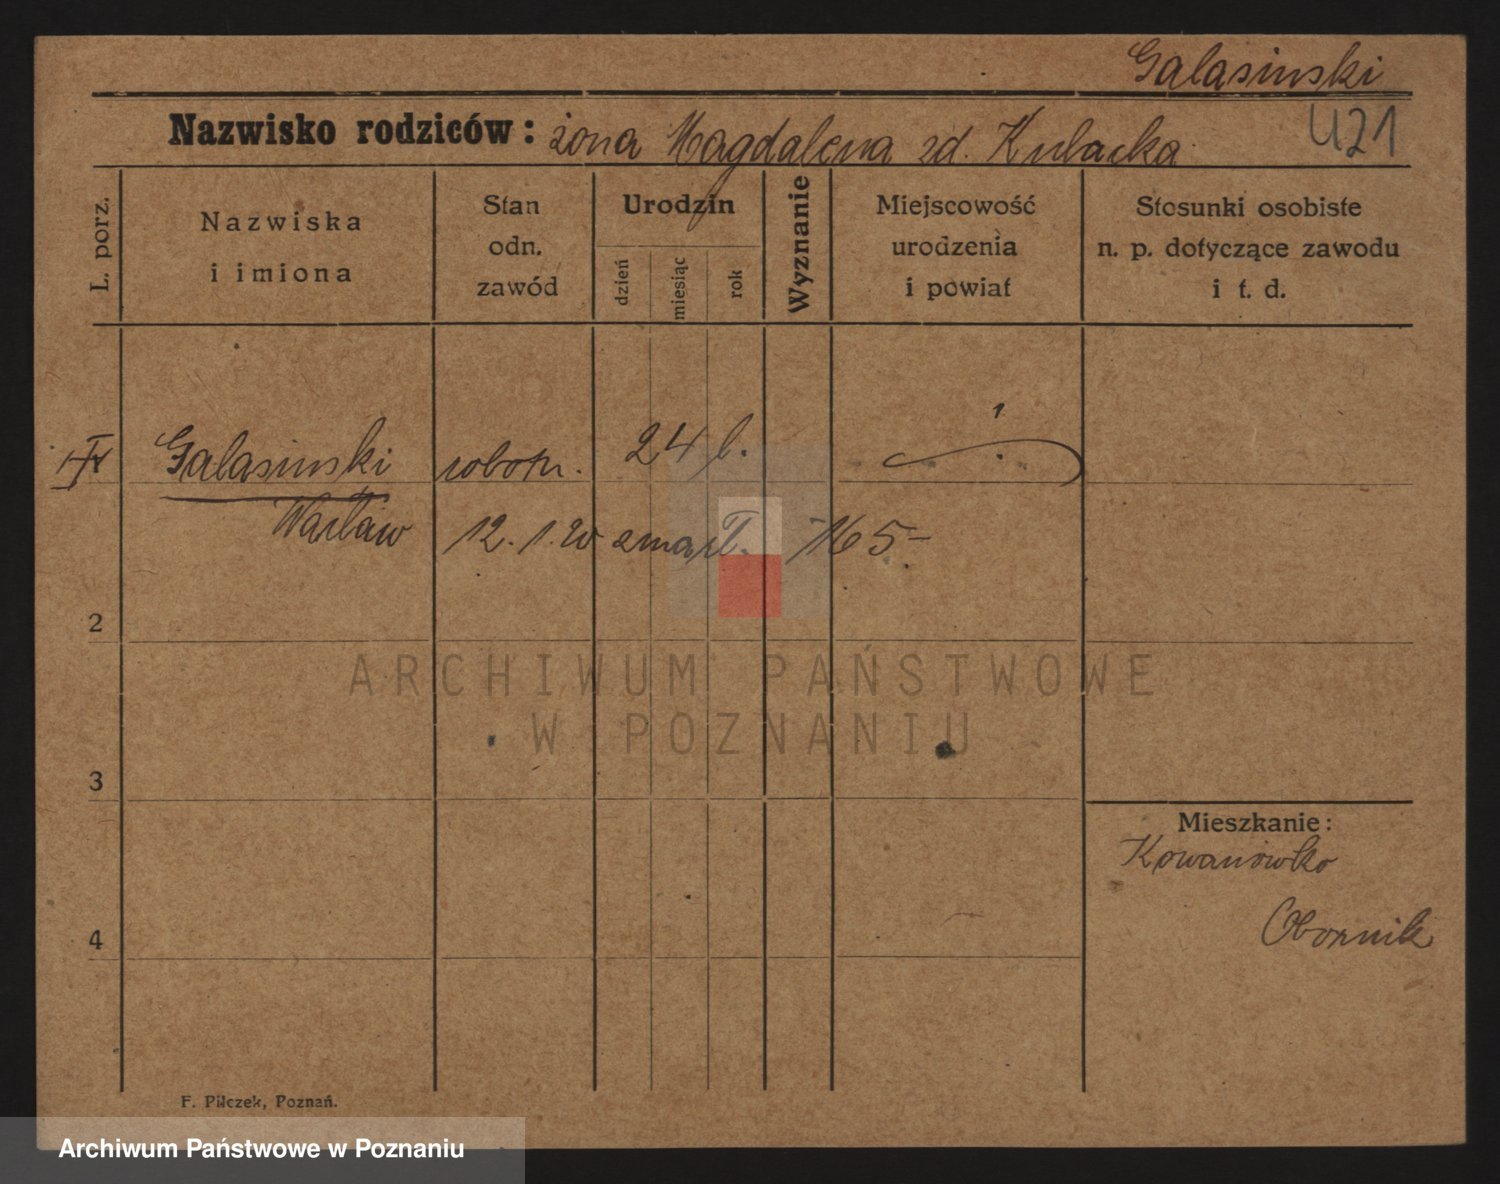 Galasinski
Nazwisko rodziców: żona Magdalena zd. Kulacka
421
L. porz.
Nazwiska
i imiona
Stan
odn.
zawód
Urodzin
dzień
miesiąc
rok
Wyznanie
Miejscowość
urodzenia
i powiat
Stosunki osobiste
n. p. dotyczące zawodu
i t. d.
Galasinski robotn. 24 l.
Wacław 12. 1. 20 zmarł. 165-
2
3
4
Mieszkanie:
Kowanówko
Obornik
F. Pilczek, Poznań.
ARCHIWUM PAŃSTWOWE
W POZNANIU
Archiwum Państwowe w Poznaniu